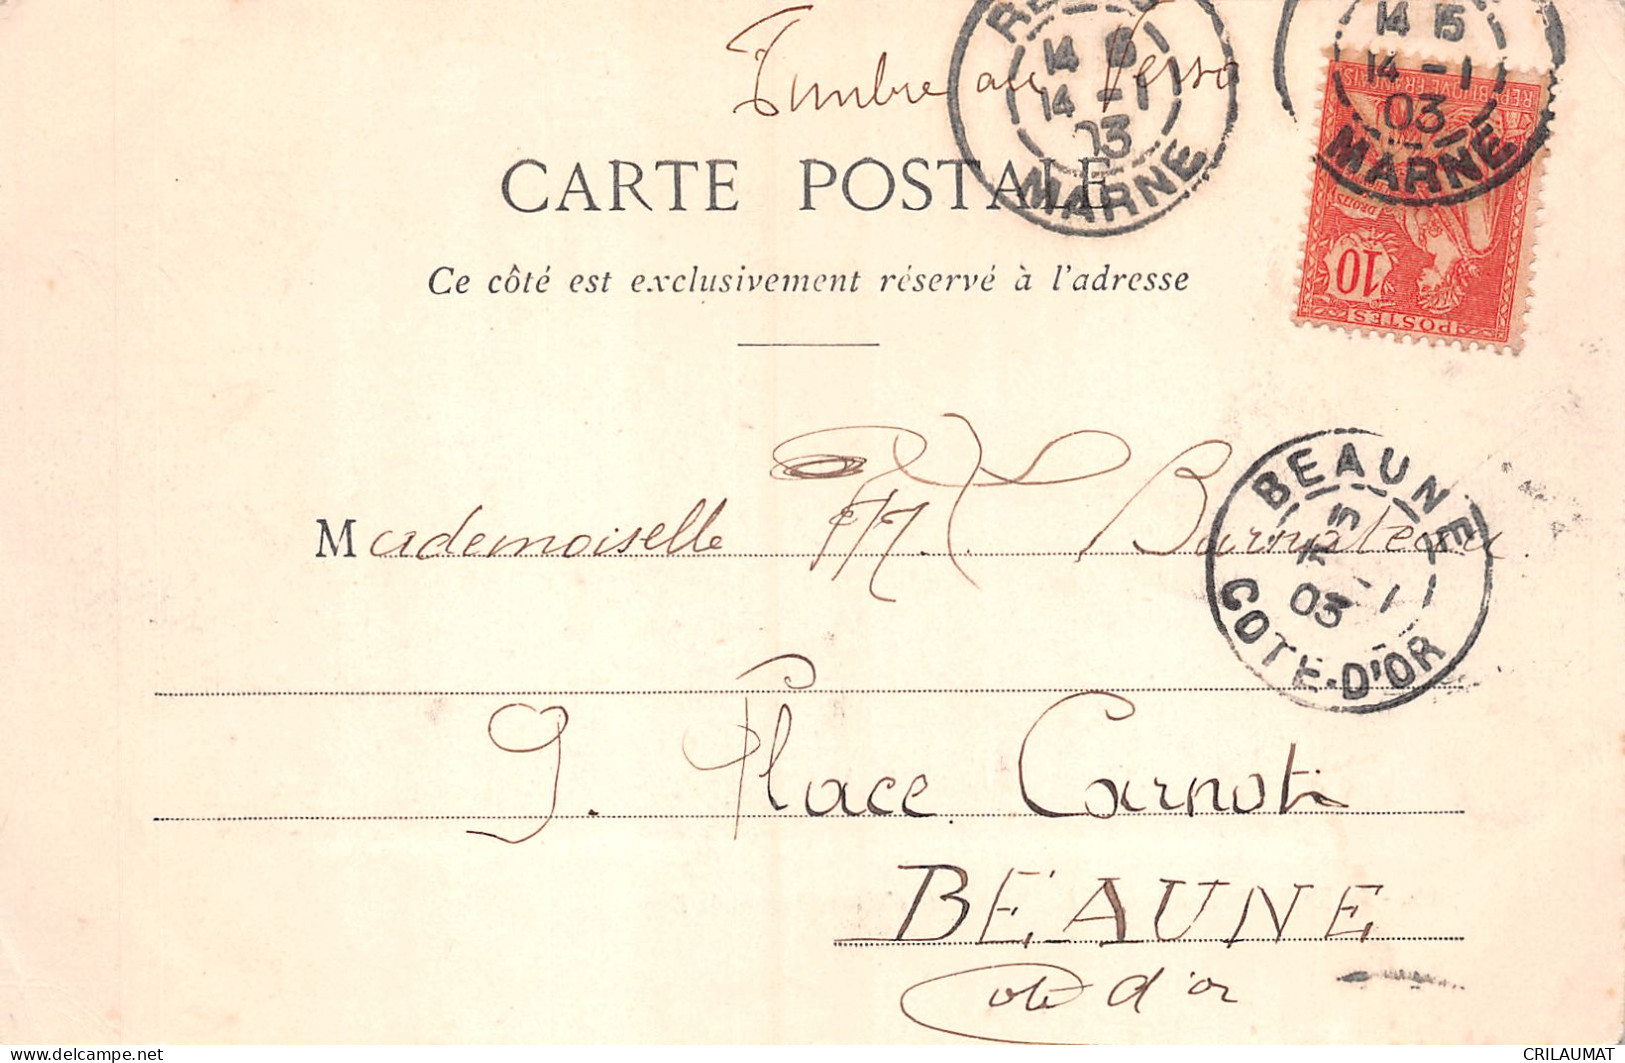 Timbre au Verso
CARTE POSTALE
Ce côté est exclusivement réservé à l'adresse
14 15
14 - 1
03
MARNE
14 15
14 - 1
03
MARNE
REPUBLIQUE FRANÇAISE
10
POSTES
BEAUNE
03
COTE-D'OR
Mademoiselle M.
9. Place Carnot
BEAUNE
Cote d'or
delcampe.net
CRILAUMAT